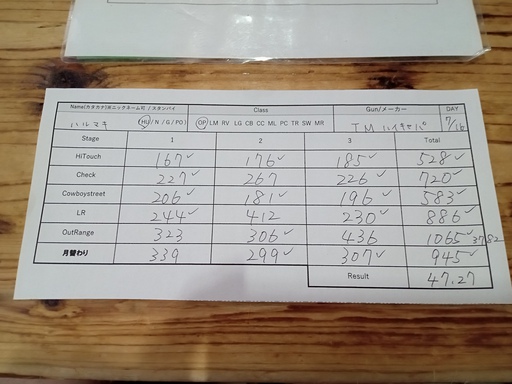 Name(カタカナ)※ニックネーム可 / スタンバイ Class Gun/メーカー DAY
ハルマキ (HU/N/G/PO) OP LM RV LG CB CC ML PC TR SW MR TM ハイキャパ 7/16
Stage 1 2 3 Total
HiTouch 167✓ 176✓ 185✓ 528✓
Check 227✓ 267 226✓ 720✓
Cowboystreet 206✓ 181✓ 196✓ 583✓
LR 244✓ 412 230✓ 886✓
OutRange 323 306✓ 436 1065✓ 37.82
月替わり 339 299✓ 307✓ 945✓
Result 47.27